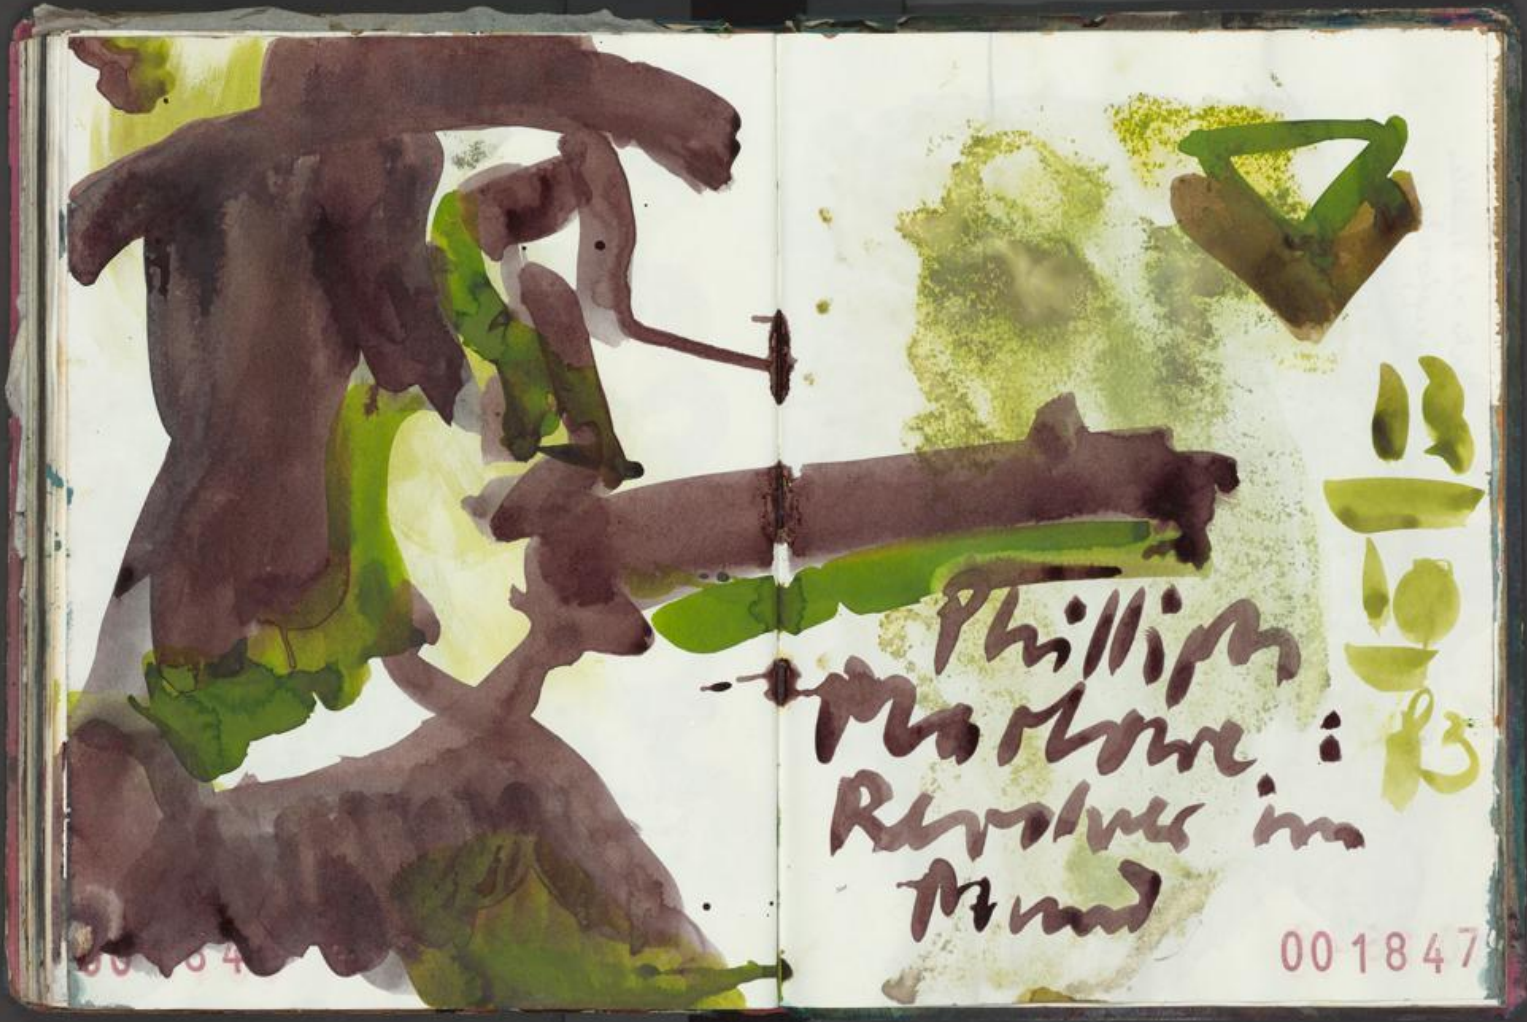 Phillip
Marlowe :
Revolver im
Mund
001847